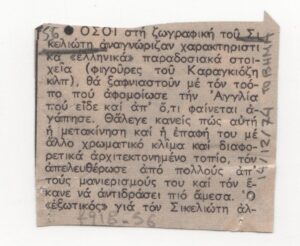 56
● ΟΣΟΙ στή ζωγραφική τοῦ Σι-
κελιώτη ἀναγνώριζαν χαρακτηριστι-
κα «ἑλληνικά» παραδοσιακά στοι-
χεῖα (φιγοῦρες τοῦ Καραγκιόζη
κλπ), θά ξαφνιαστοῦν μέ τόν τρό-
πο πού ἀφομοίωσε τήν Ἀγγλία
πού εἶδε καί ἀπ' ὅ,τι φαίνεται ἀ-
γάπησε. Θἄλεγε κανείς πώς αὐτή
ἡ μετακίνηση καί ἡ ἐπαφή του μέ
ἄλλο χρωματικό κλίμα καί διαφο-
ρετικά ἀρχιτεκτονημένο τοπίο, τόν
ἀπελευθέρωσε ἀπό πολλούς ἀπ'
τούς μανιερισμούς του καί τόν ἔ-
κανε νά ἀντιδράσει πιό ἄμεσα. Ὁ
«ἐξωτικός» γιά τόν Σικελιώτη ἀλ-
14/12/74 ΤΟ ΒΗΜΑ